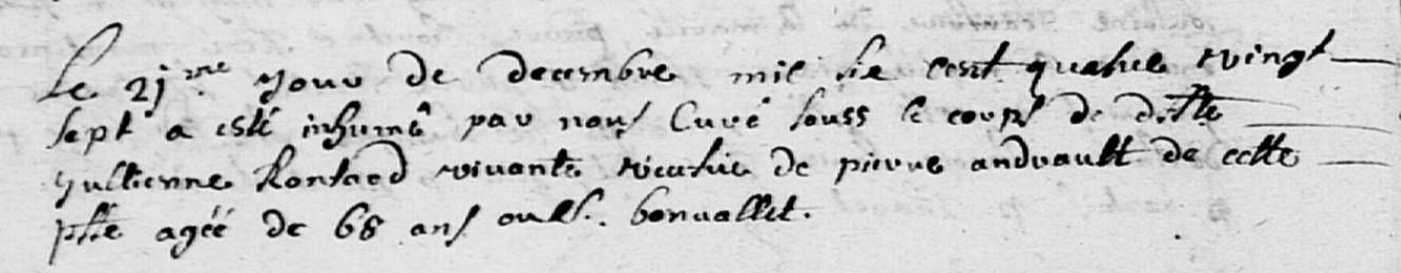 Le 21me jour de decembre mil sie cent quatre vingt
sept a esté inhumé par nous Curé souss le corps de deffte
Jullienne Rontard vivante vieufve de pierre andrault de cette
psse agéé de 68 ans bonvallet.